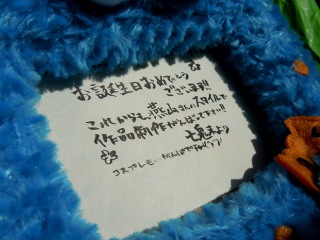 お誕生日おめでとう
ございます!!
これからも、燕山さんのスタイルで
作品制作がんばって下さい!!
より
コスプレも…がんばって下さい